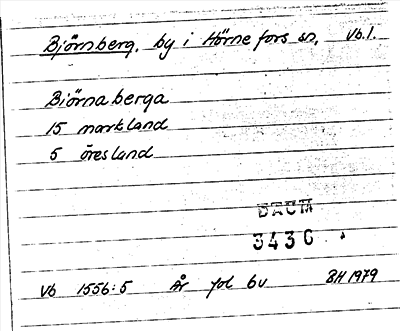 Björnberg, by i Hörnefors sn, Vb.l.
Biörnaberga
15 markland
5 öresland
DAUM
3436
Vb 1556:5 År fol 6v BH 1979